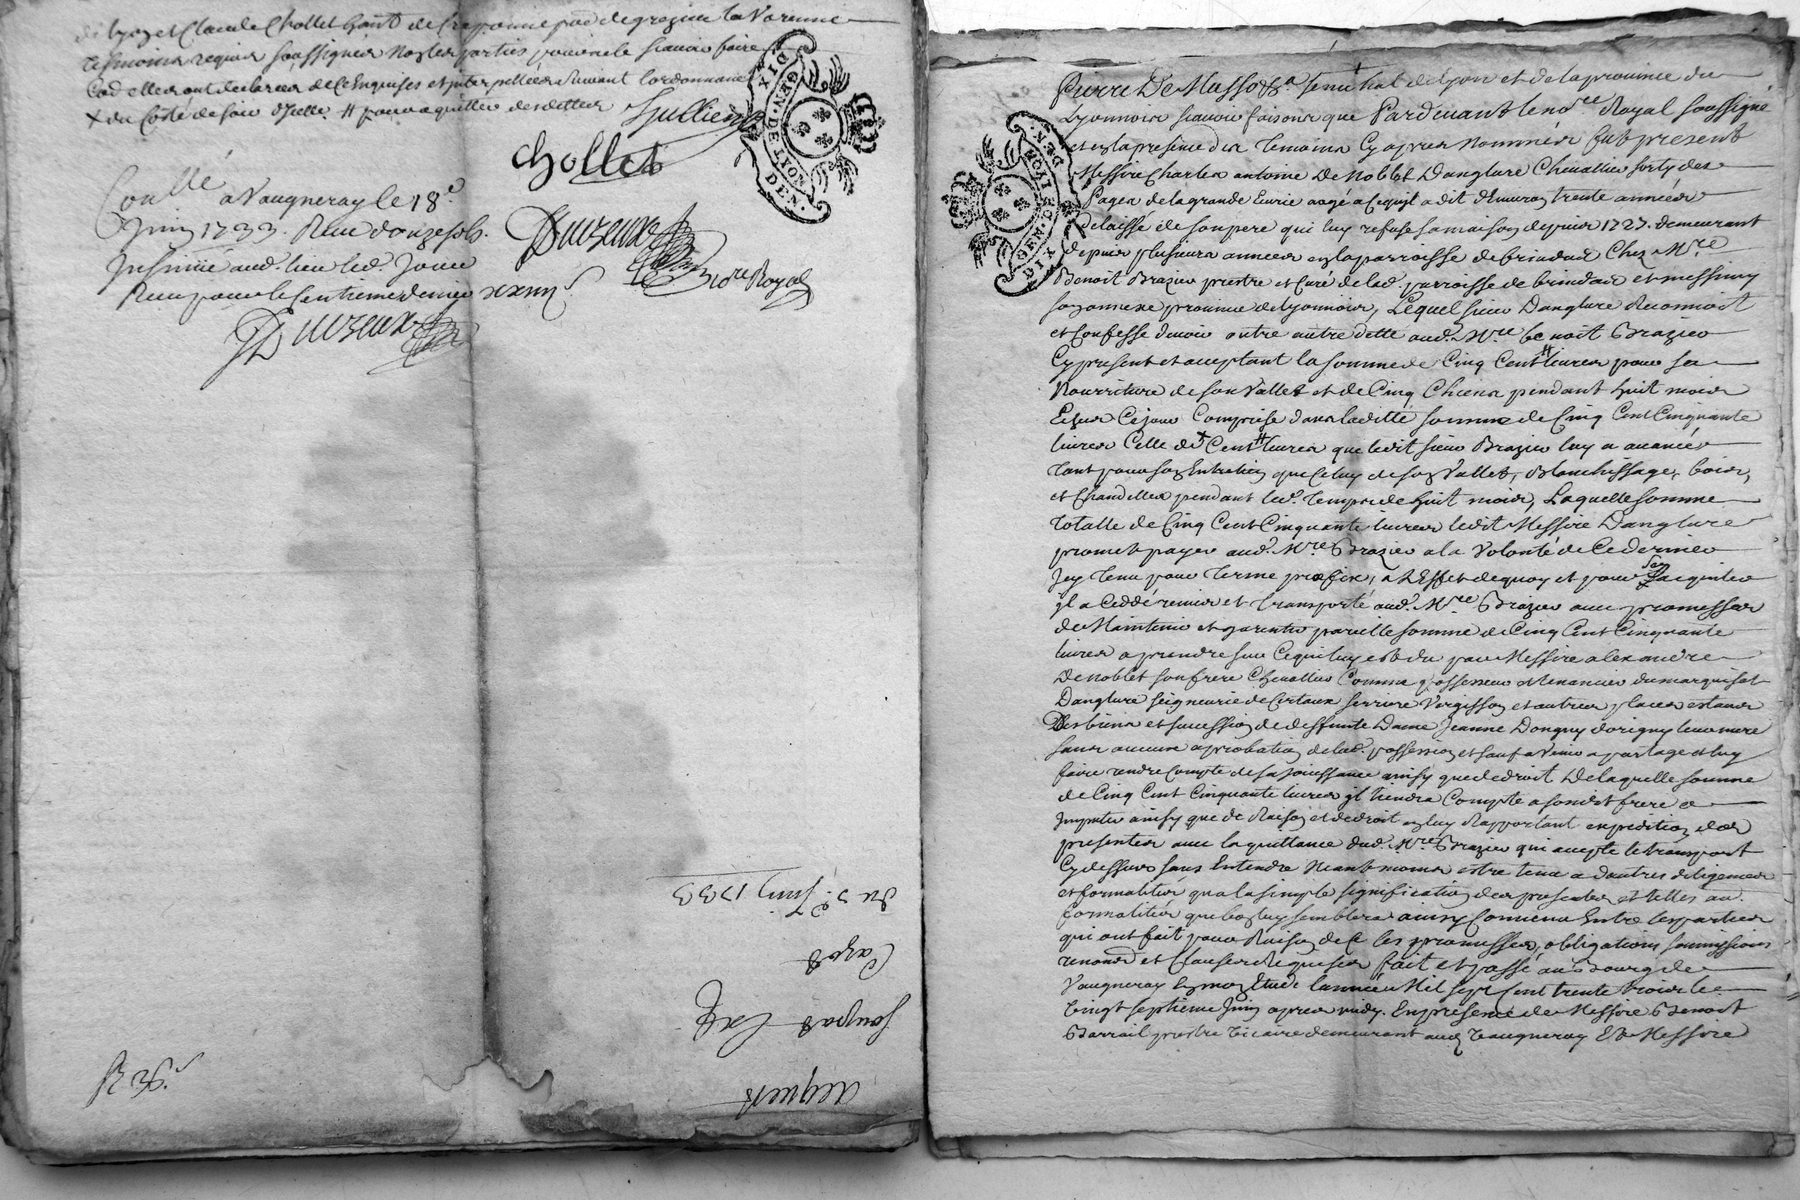 de Lyon et Claude Chollet habt. de Craponne psse de grezieu la Varenne
tesmoins requis soussignés non les parties pour ne le scavoir faire
Cod elles ont declarées de ce Enquises et interpellées suivant lordonnance
x du Costé de soir dJcelle # pour aquitter de dettes Jullien
Chollet
Conllé a Vaugneray le 18e
Juin 1733. Reçu douze sols.
Insinüé aud. lieu led. Jour
Reçu pour le Centieme denier
Duzeux
nore Royal
Duzeux
GEN. DE LYON
DIX DEN.
Du 7e Juin 1733
acquets
GEN. DE LYON
DIX DEN.
Pierre De Masso &a senechal de Lyon et de la province du
Lyonnois scavoir faisons que Pardevant le nore Royal soussigné
et en la presence des temoins Cy apres nommés fut present
Messire Charles antoine De Noblet Danglure Chevallier sorty des
Pages de la grande Ecurie aagé a Ce quil a dit dEnviron trente années
Delaissé de son pere qui luy refuse sa maison depuis 1727. demeurant
depuis plusieurs années en la parroisse de brindas Chez Mre
Benoit Brazier prestre et Curé de lad. parroisse de brindas et messimy
son annexe province de Lyonnois, Lequel sieur Danglure Reconnoit
et Confesse devoir outre autre dette aud. Mre benoit Brazier
Cy present et acceptant la somme de Cinq Cent # livres pour sa
Nourriture de son Vallet et de Cinq Chiens pendant huit mois
Echus Ce jour Comprise dans laditte somme de Cinq Cent Cinquante
livres Celle de x Cent # livres que ledit sieur Brazier luy a avancée
tant pour son Entretien que Celuy de son Vallet, Blanchissage, bois,
et Chandelles pendant led. temps de huit mois, Laquelle somme
totalle de Cinq Cent Cinquante livres ledit Messire Danglure
promet payer aud. Mre Brazier a la Volonté de Ce dernier
Jcy tenu pour terme prefix, a LEffet dequoy et pour sen acquitter
jl a Ceddé remis et transporté aud. Mre Brazier avec promesses
de Maintenir et garentir pareille somme de Cinq Cent Cinquante
livres a prendre sur Ce qui luy est du par Messire alexandre
De Noblet son frere Chevallier Comme possesseur et tenancier du marquisat
Danglure seigneurie de Certaux serriere Vergisson et autres places estans
Des biens et succession de deffunte Dame Jeanne Donguy dorigny leur mere
sans aucune aprobation de lad. possession et sauf a Venir a partage et luy
faire rendre Compte de sa jouissance ainsy que de droit De laquelle somme
de Cinq Cent Cinquante livres jl tiendra Compte a sondit frere a
Jmputer ainsy que de Raison et de droit en luy Rapportant expedition des
presentes avec la quittance dud. Mre Brazier qui accepte le transport
Cy dessus sans Entendre Neantmoins estre tenu a dautres diligences
et formalités qua la simple signification des presentes et telles au.
formalités que bon luy semblera ainsy Convenu Entre les parties
qui ont fait pour Raison de Ce les promesses, obligations soumissions
renonc.ons et Clauses Requises fait et passé au Bourg de
Vaugneray En mon Etude lannée Mil sept Cent trente trois le
Vingt septieme Juin apres midy. En presence de Messire Benoit
Barrail prestre Vicaire demeurant aud. Vaugneray Et Messire